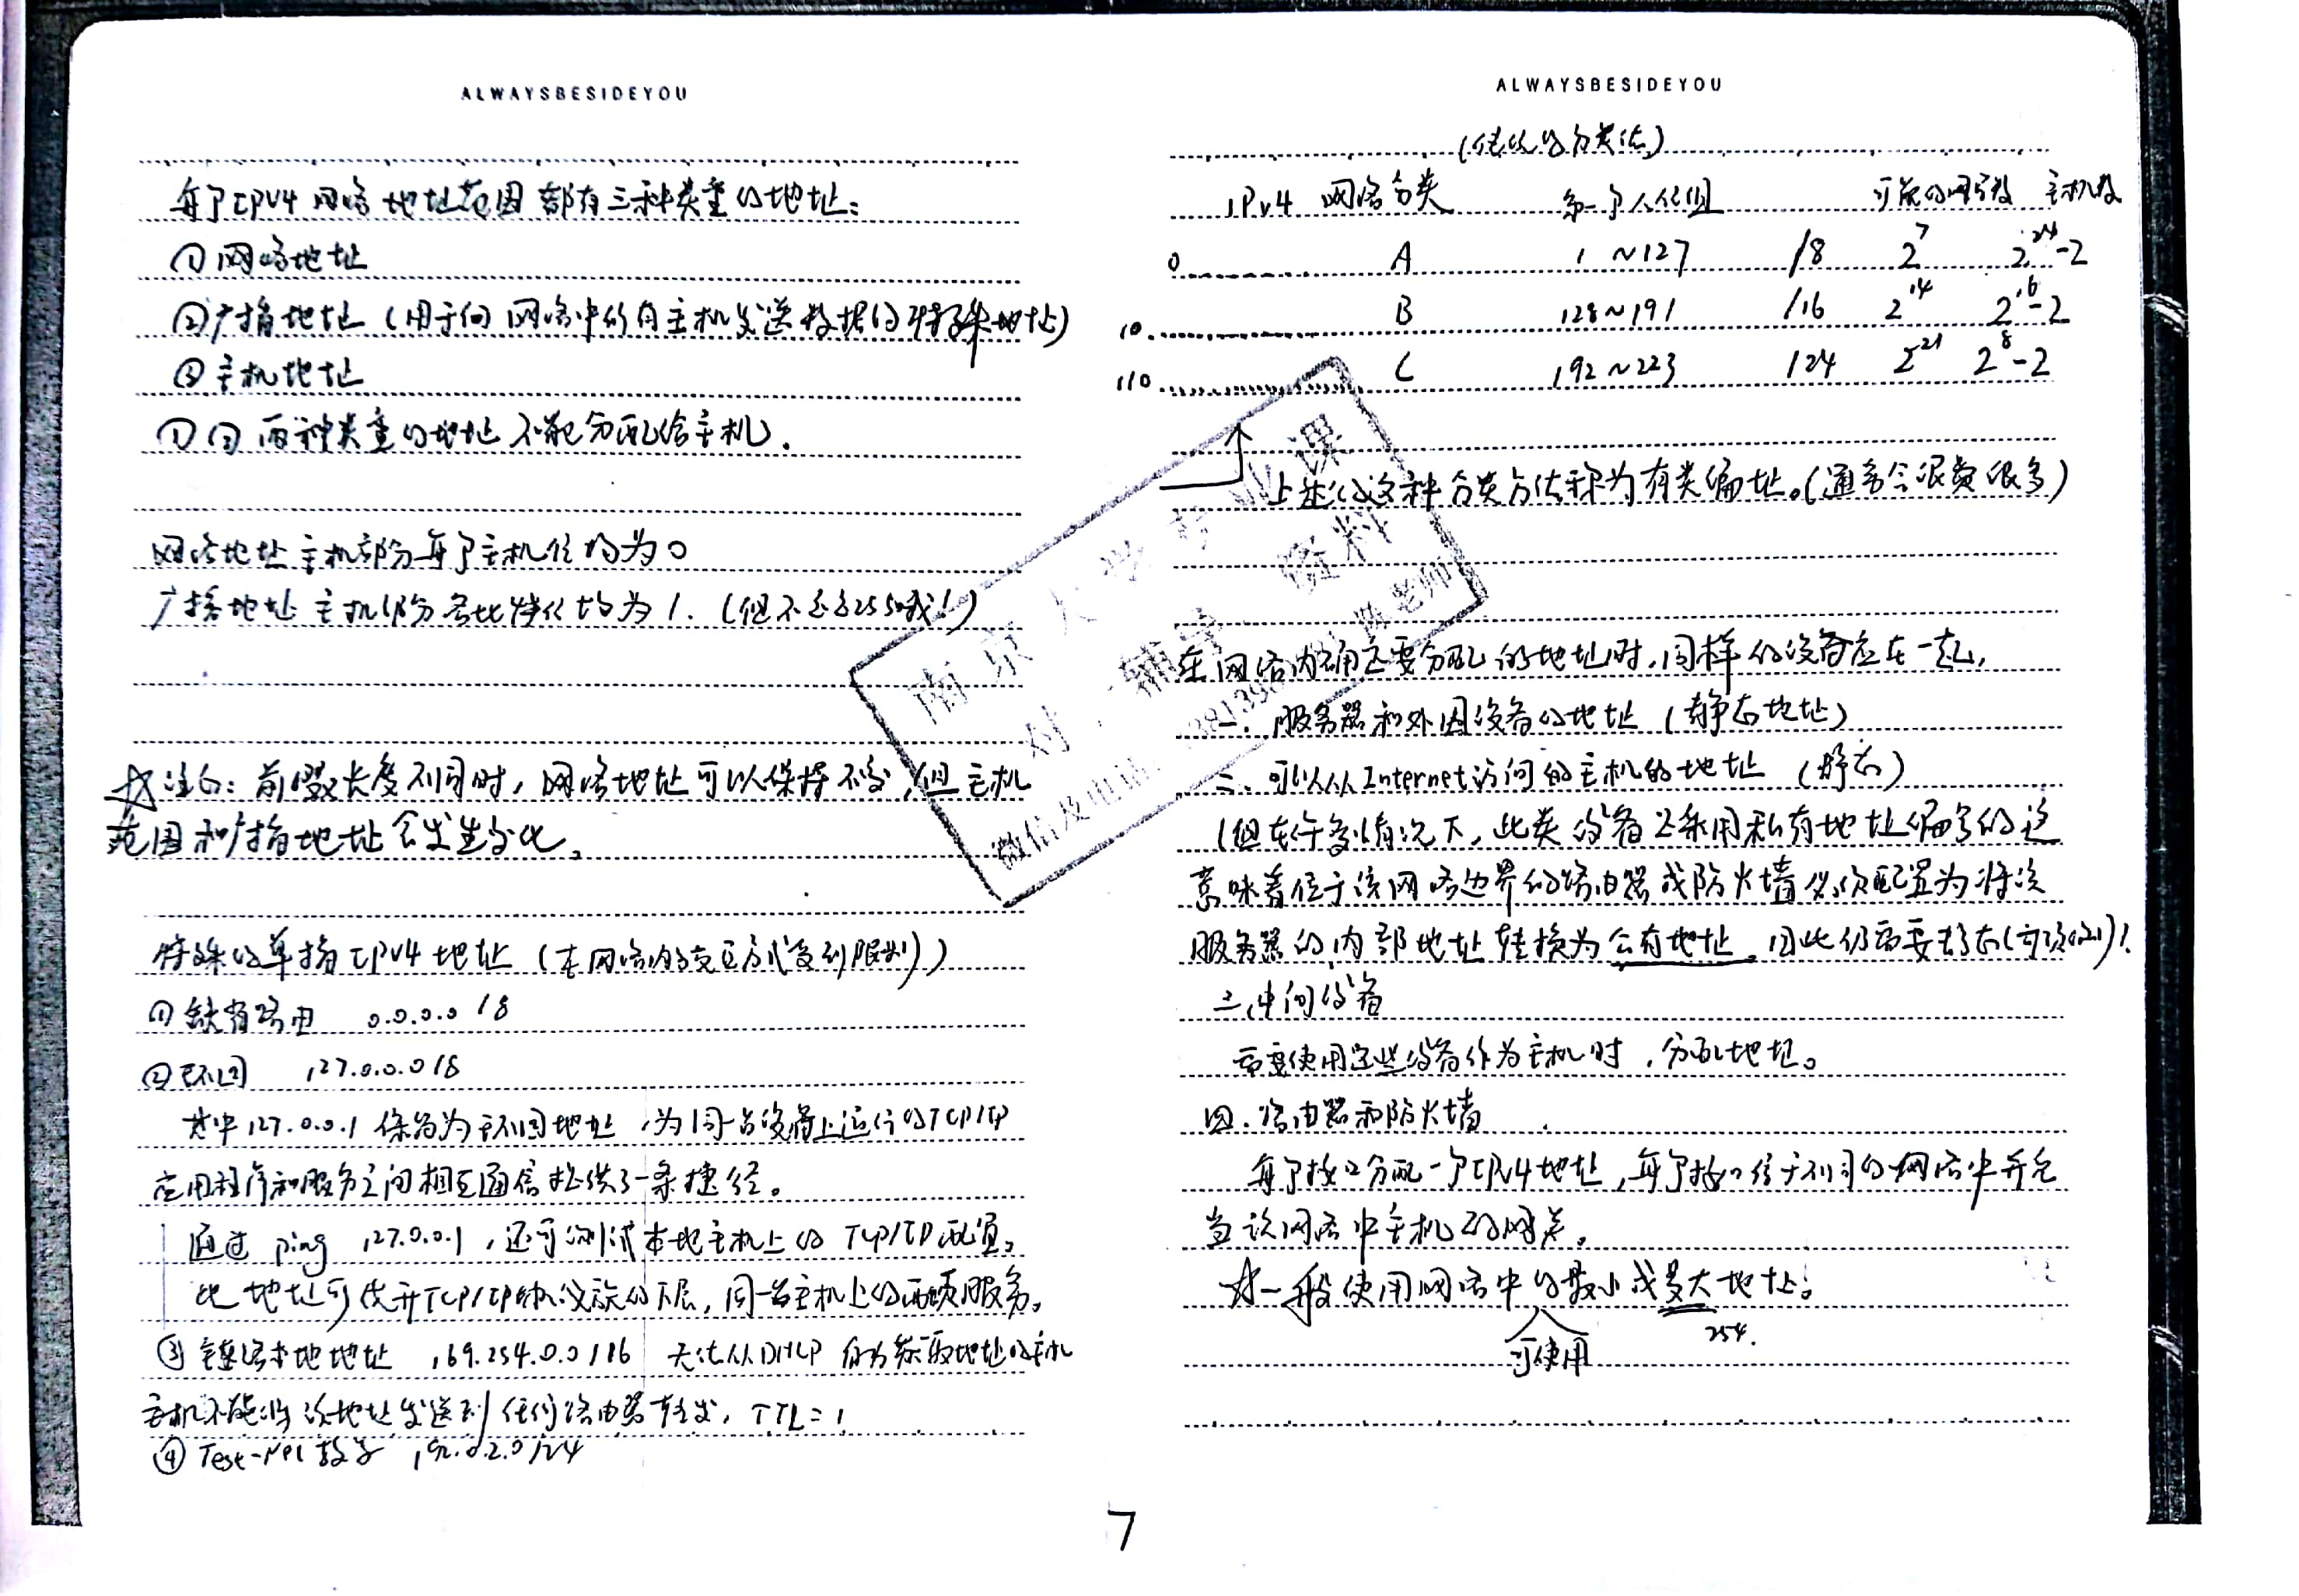 ALWAYSBESIDEYOU
每个IPV4 网络地址范围 都有三种类型的地址：
① 网络地址
② 广播地址（用于向 网络中所有主机发送数据的特殊地址）
③ 主机地址
① ② 两种类型的地址 不能分配给主机．
网络地址 主机部分每个主机位均为 0
广播地址 主机部分各比特位均为 1．（但不是全255哦！）
☆注意：前缀长度不同时，网络地址可以保持不变，但主机
范围和广播地址会发生变化。
特殊的单播IPV4地址（本网络内的交互方式受到限制）
① 缺省路由 0.0.0.0 /8
② 环回 127.0.0.0 /8
其中127.0.0.1 保留为环回地址，为同一台设备上运行的TCP/IP
应用程序和服务之间相互通信提供了一条捷径。
通过 ping 127.0.0.1，还可测试本地主机上的 TCP/IP配置。
此地址可优开TCP/IP协议族的下层，同一台主机上的两项服务。
③ 链路本地地址 169.254.0.0/16 无法从DHCP 自动获取地址的主机
主机不能将该地址发送到任何路由器转发，TTL=1
④ Test-Net 教学 192.0.2.0/24
ALWAYSBESIDEYOU
（传统的分类法）
IPv4 网络分类 第一个八位组 可能的网络数 主机数
0 A 1~127 /8 2^7 2^24-2
10 B 128~191 /16 2^14 2^16-2
110 C 192~223 /24 2^21 2^8-2
上述的这种分类方法称为有类编址。（通常会浪费很多）
在网络内确定要分配的地址时，同样的设备应在一起，
一．服务器和外围设备的地址（静态地址）
二．可以从Internet访问的主机的地址（静态）
（但在许多情况下，此类设备还采用私有地址编号的 这
意味着位于该网络边界的路由器或防火墙必须配置为将该
服务器的内部地址转换为公有地址。因此仍需要静态（可预测）！
三、中间设备
需要使用这些设备作为主机时，分配地址。
四．路由器和防火墙
每个接口分配一个IPv4地址，每个接口位于不同的网络中并充
当该网络中主机的网关。
☆一般使用网络中的最小或最大地址。
可使用
254.
南京大学专业课
对 辅导 资料
微信及电话 老师
7